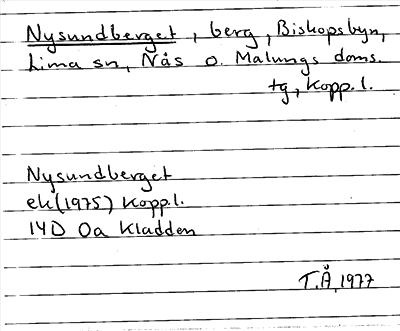 Nysundberget, berg, Biskopsbyn,
Lima sn, Nås o. Malungs doms.
tg, Kopp.l.
Nysundberget
ek(1975) Koppl.
14D 0a Kladden
T.Å, 1977